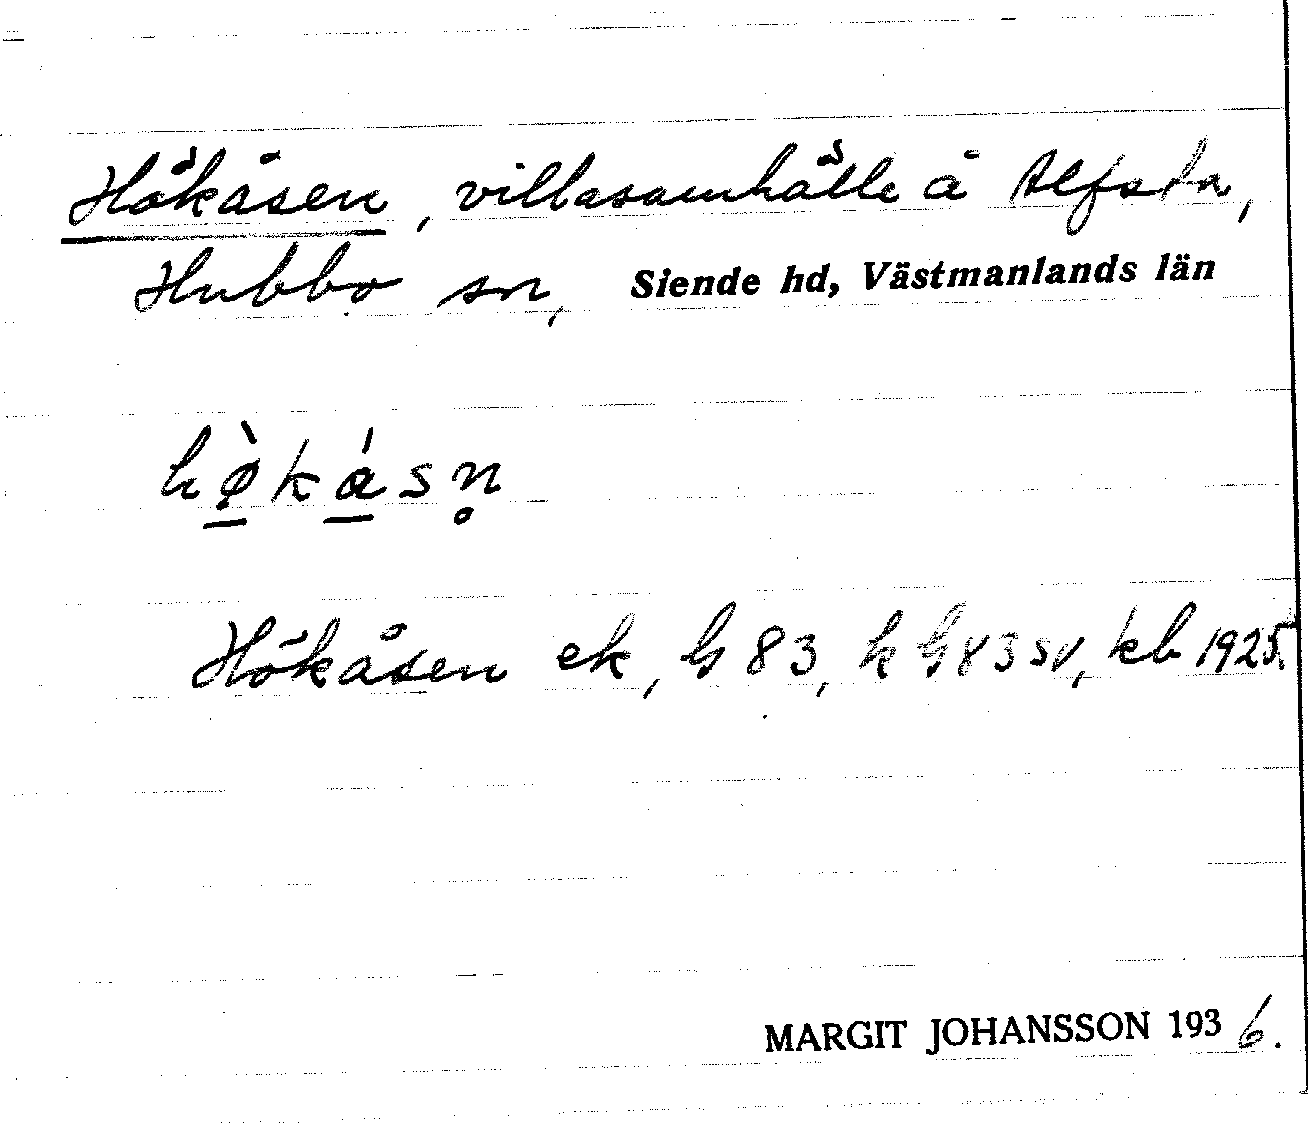 Hökåsen, villasamhälle å Alfsta,
Hubbo sn, Siende hd, Västmanlands län
hø̀kásn̥
Hökåsen ek, G 83, k G 83 sv, kb 1925.
MARGIT JOHANSSON 1936.